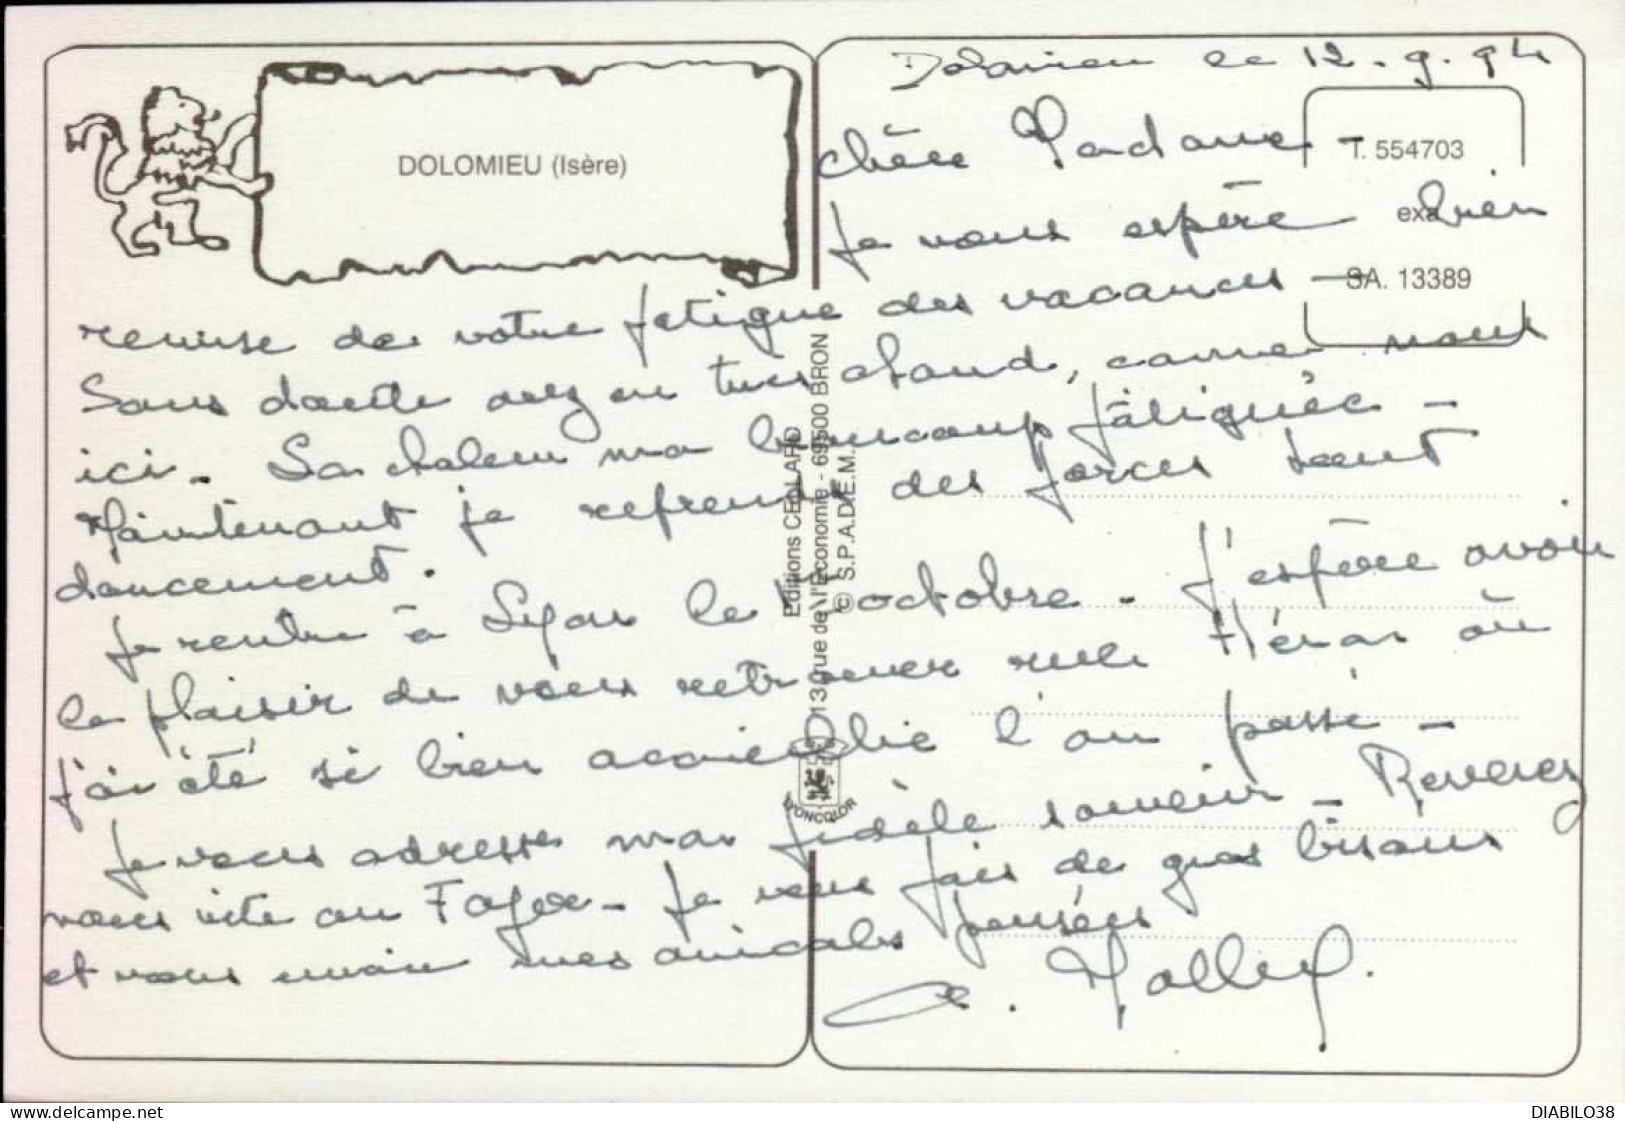 Dolomieu le 12.9.94
DOLOMIEU (Isère)
T. 554703
exa
SA. 13389
chère Madame
Je vous espère bien
remise de votre fatigue des vacances -
Sans doute avez eu très chaud, comme nous
ici. La chaleur m'a beaucoup fatiguée -
Maintenant je reprends des forces tout
doucement.
Je rentre à Lyon le octobre - J'espère avoir
le plaisir de vous retrouver rue où
j'ai été si bien accueillie l'an passé -
Je vous adresse mon fidèle souvenir - Revenez
nous vite au Foyer - Je vous fais de gros bisous
et vous envoie mes amicales pensées
Editions CELLARD
13 rue de l'Economie - 69500 BRON
© S.P.A.D.E.M.
DIABILO38
www.delcampe.net